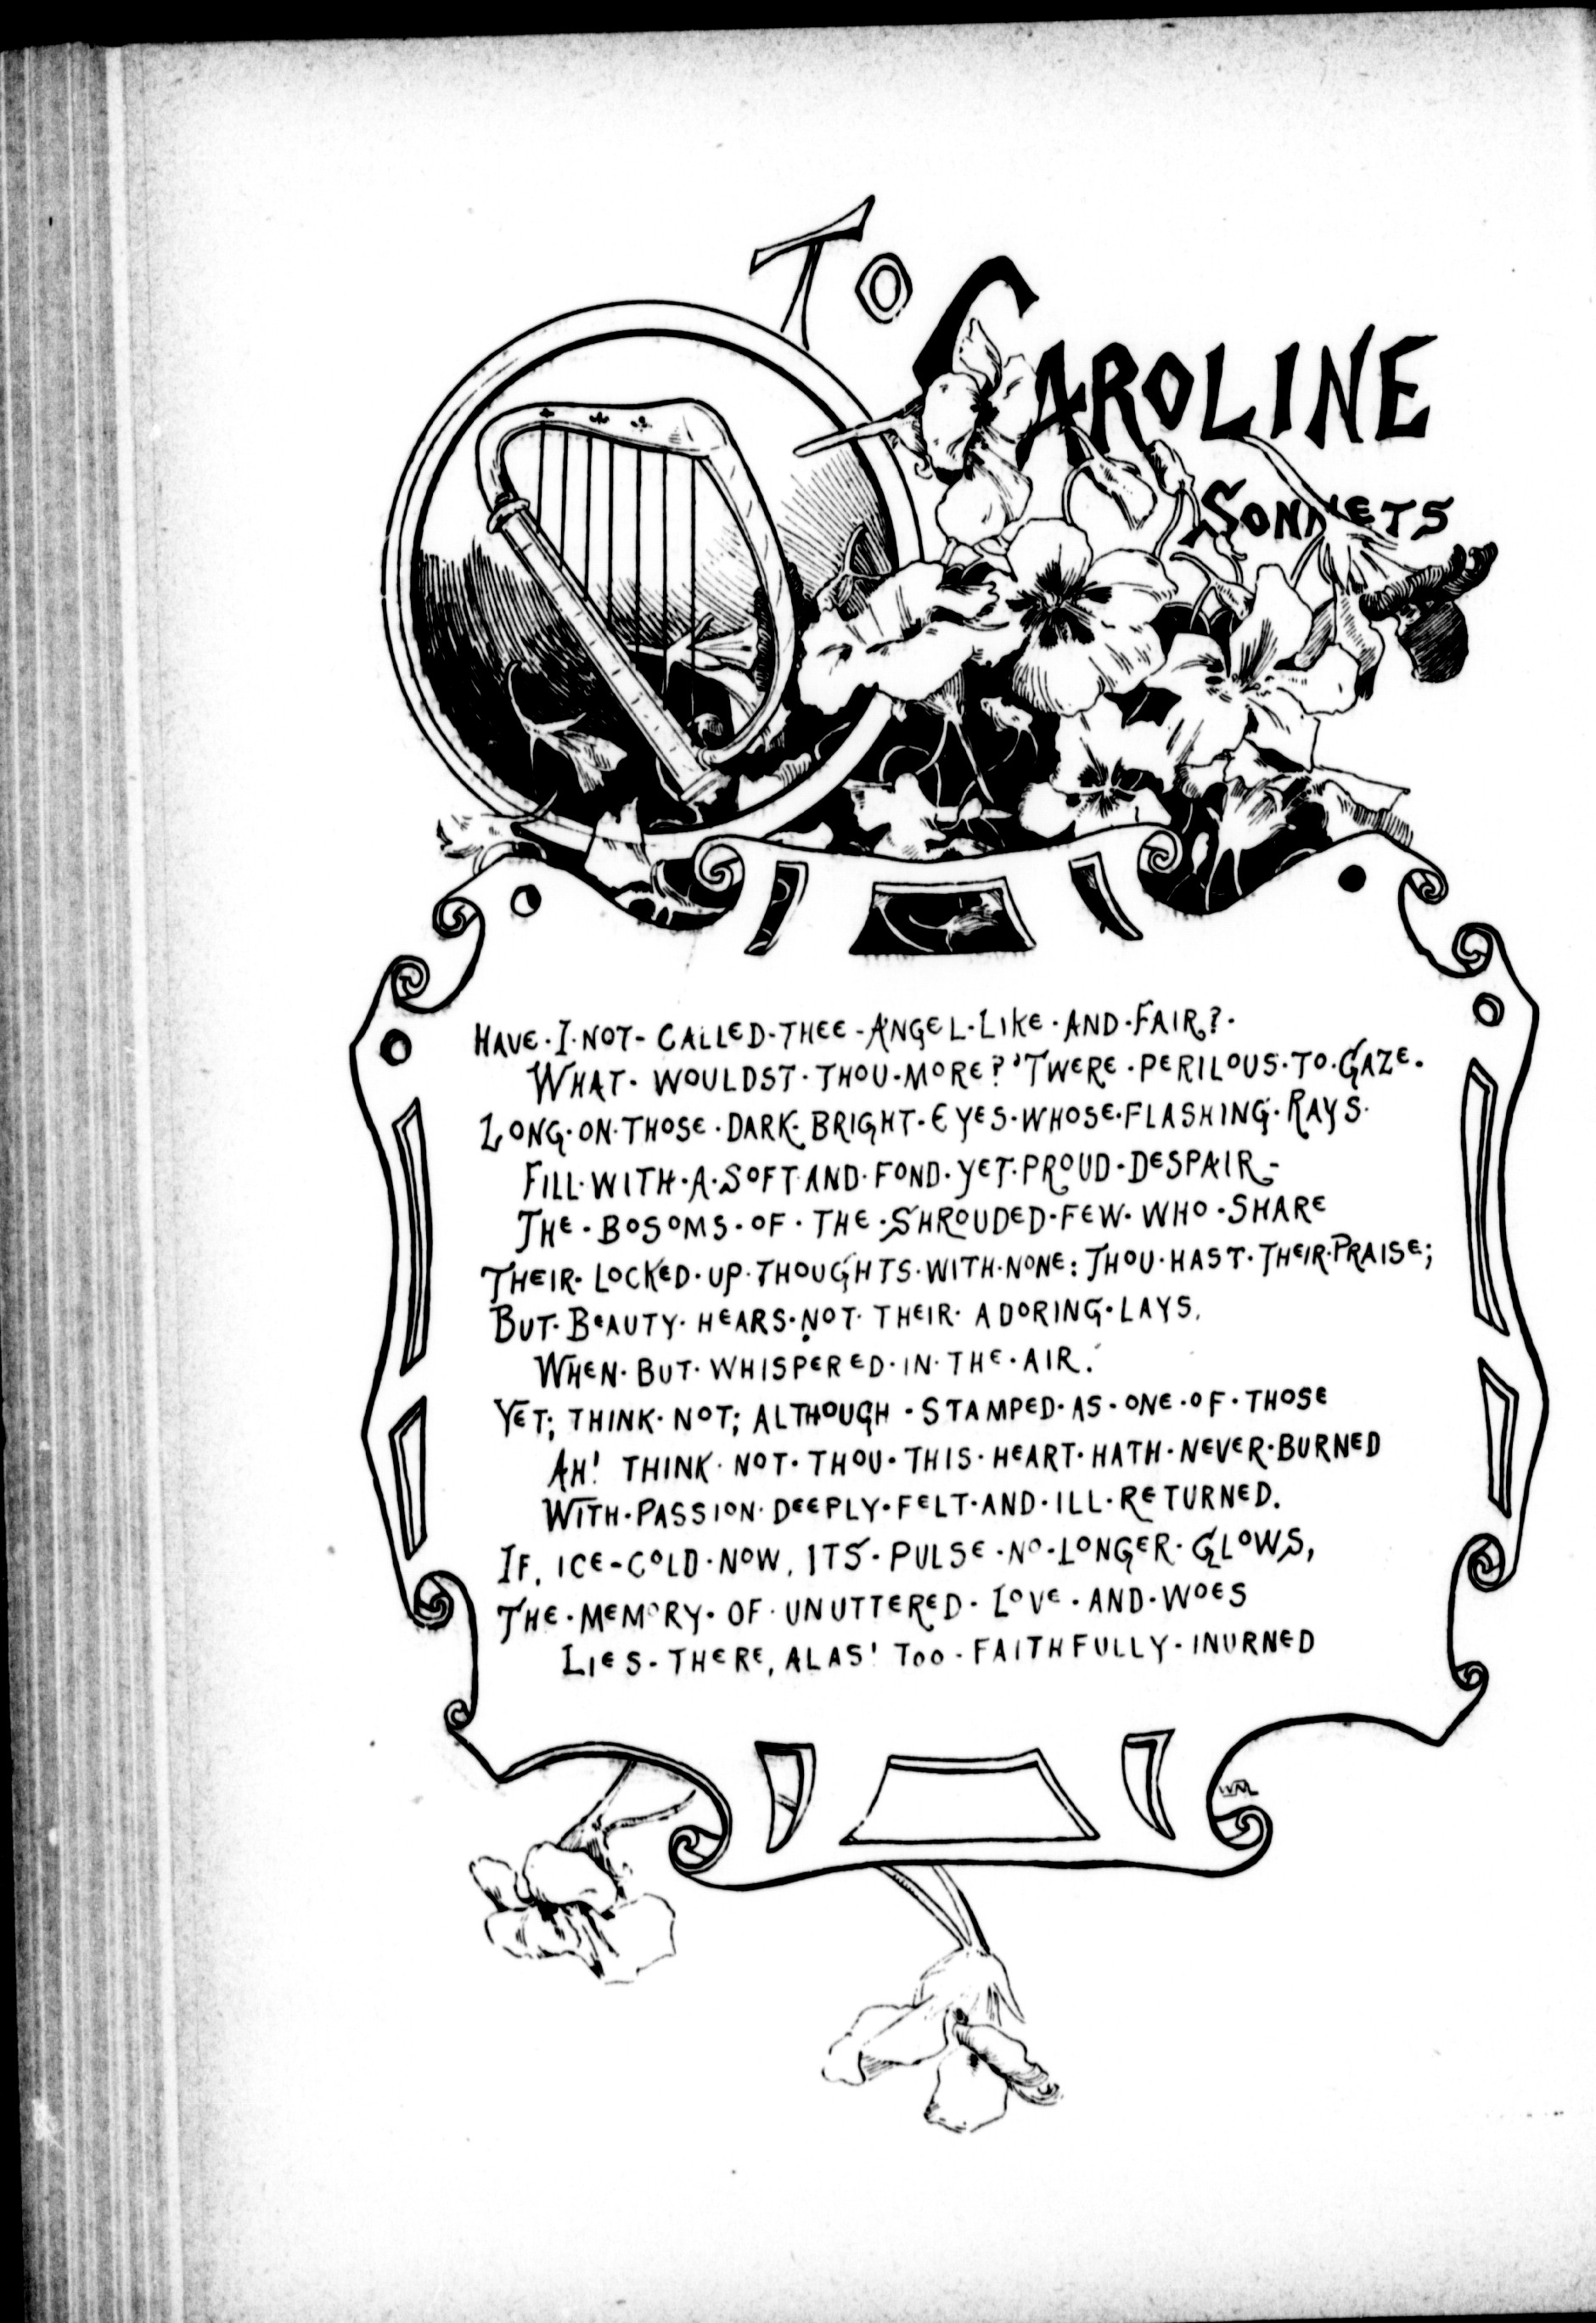 TO CAROLINE
SONNETS
HAVE·I·NOT-CALLED-THEE-ANGEL-LIKE·AND·FAIR?·
WHAT·WOULDST·THOU·MORE? 'TWERE·PERILOUS·TO·GAZE·
LONG·ON·THOSE·DARK·BRIGHT·EYES·WHOSE·FLASHING·RAYS·
FILL·WITH·A·SOFT·AND·FOND·YET·PROUD·DESPAIR-
THE·BOSOMS·OF·THE·SHROUDED·FEW·WHO·SHARE
THEIR·LOCKED·UP·THOUGHTS·WITH·NONE: THOU·HAST·THEIR·PRAISE;
BUT·BEAUTY·HEARS·NOT·THEIR·ADORING·LAYS,
WHEN·BUT·WHISPERED·IN·THE·AIR.
YET; THINK·NOT; ALTHOUGH·STAMPED·AS·ONE·OF·THOSE
AH! THINK·NOT·THOU·THIS·HEART·HATH·NEVER·BURNED
WITH·PASSION·DEEPLY·FELT·AND·ILL·RETURNED.
IF, ICE-COLD·NOW, ITS·PULSE·NO·LONGER·GLOWS,
THE·MEMORY·OF·UNUTTERED·LOVE·AND·WOES
LIES-THERE, ALAS! TOO·FAITHFULLY·INURNED